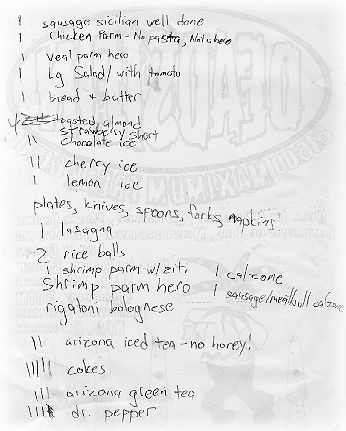 1 sausage sicilian well done
1 Chicken Parm - No pasta, Not a hero
1 veal parm hero
1 Lg Salad/ with tomato
1 bread + butter
toasted almond
strawberry short
11 chocolate ice
11 cherry ice
1 lemon ice
plates, knives, spoons, forks, napkins
1 lasagna
2 rice balls
1 shrimp parm w/ziti 1 calzone
shrimp parm hero 1 sausage/meatball calzone
rigatoni bolognese
111 arizona iced tea - no honey!
11111 cokes
111 arizona green tea
1111 dr. pepper